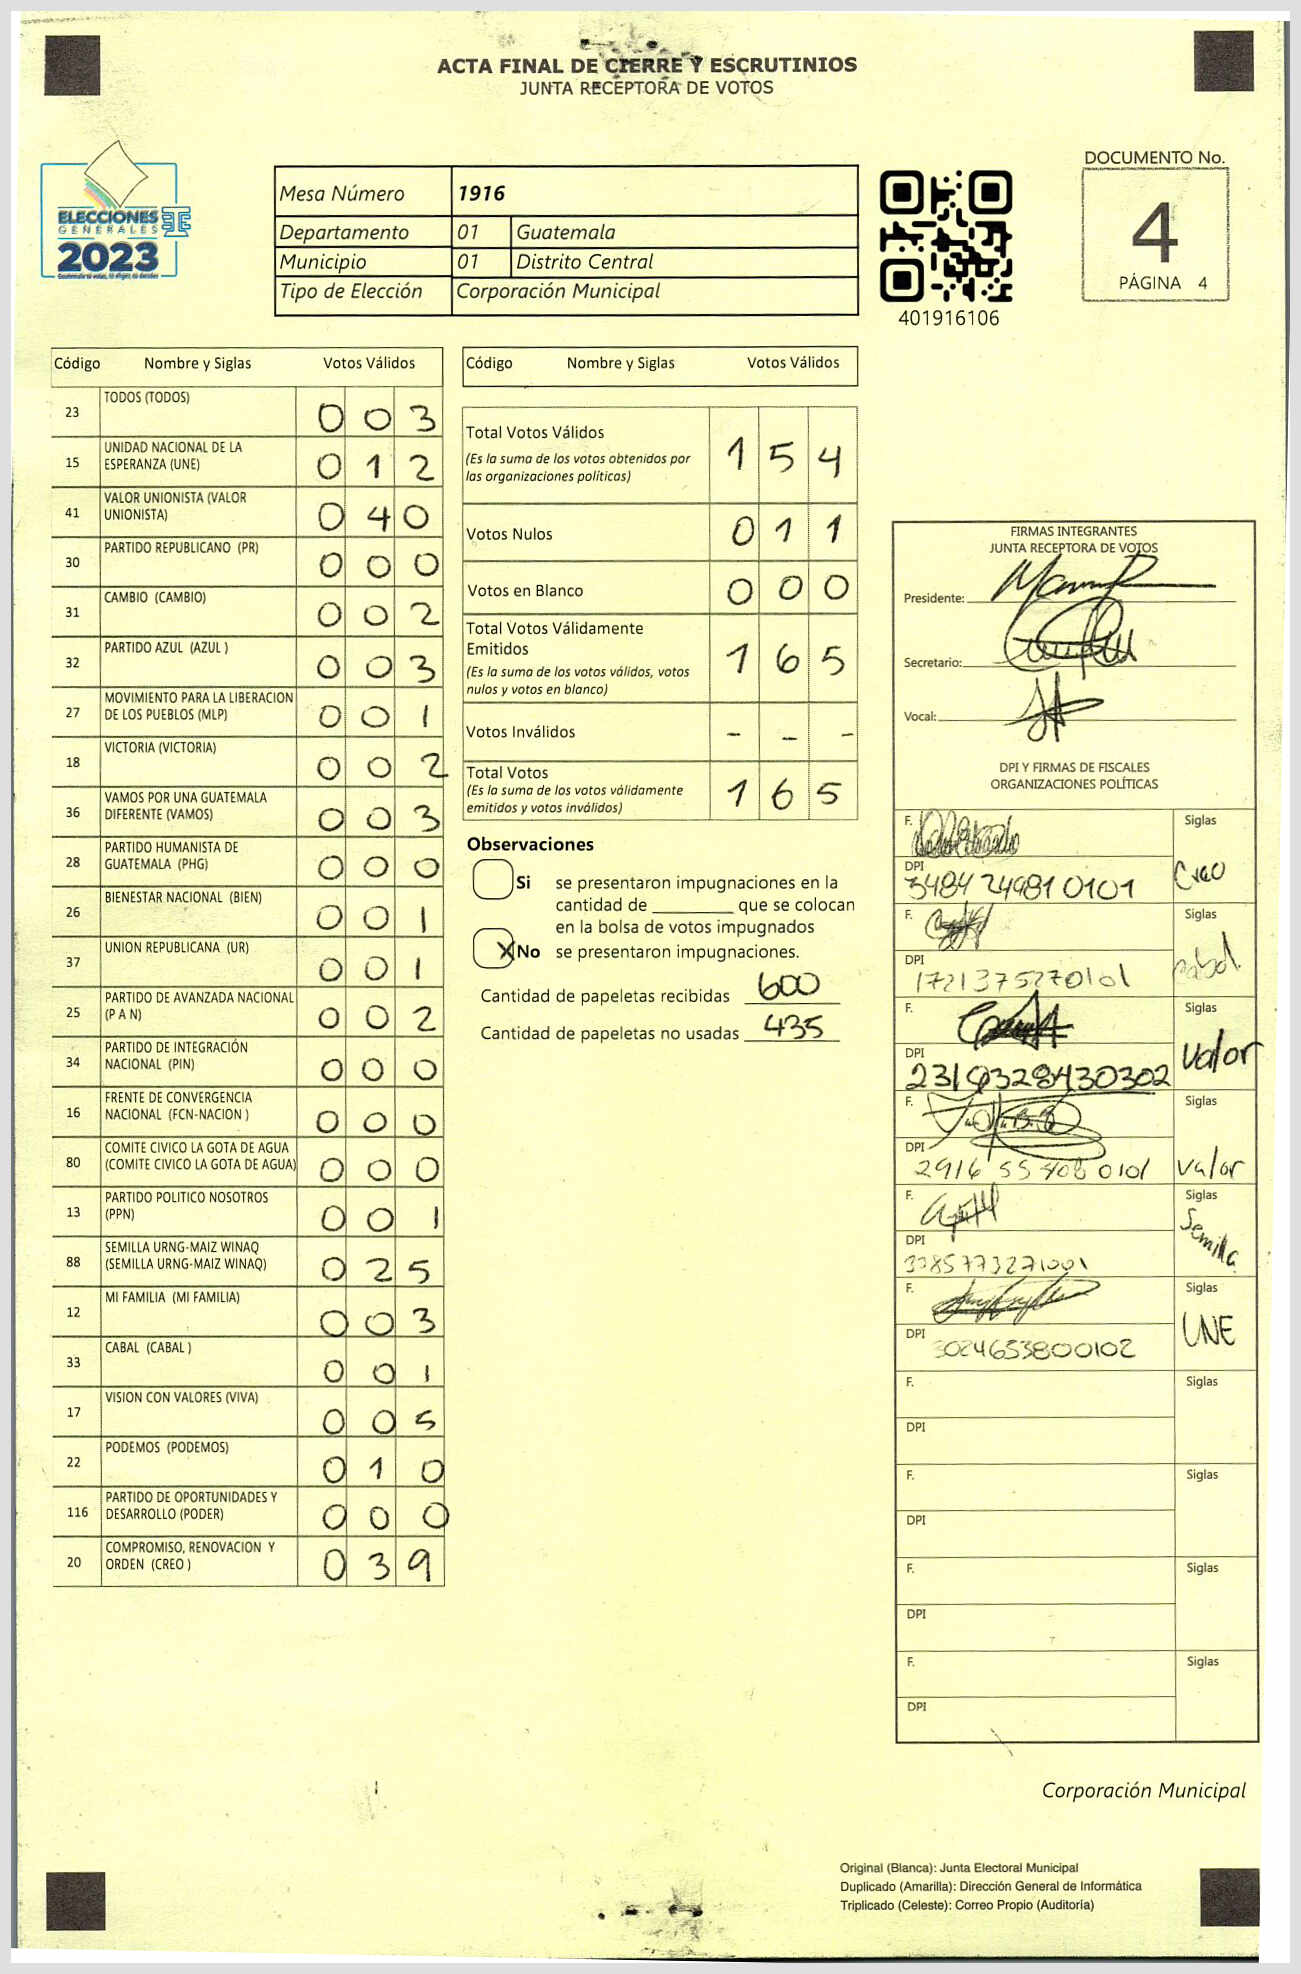 ACTA FINAL DE CIERRE Y ESCRUTINIOS
JUNTA RECEPTORA DE VOTOS
ELECCIONES
GENERALES
2023
Mesa Número 1916
Departamento 01 Guatemala
Municipio 01 Distrito Central
Tipo de Elección Corporación Municipal
401916106
DOCUMENTO No.
4
PÁGINA 4
Código Nombre y Siglas Votos Válidos
23 TODOS (TODOS) 0 0 3
15 UNIDAD NACIONAL DE LA
ESPERANZA (UNE) 0 1 2
41 VALOR UNIONISTA (VALOR
UNIONISTA) 0 4 0
30 PARTIDO REPUBLICANO (PR) 0 0 0
31 CAMBIO (CAMBIO) 0 0 2
32 PARTIDO AZUL (AZUL ) 0 0 3
27 MOVIMIENTO PARA LA LIBERACION
DE LOS PUEBLOS (MLP) 0 0 1
18 VICTORIA (VICTORIA) 0 0 2
36 VAMOS POR UNA GUATEMALA
DIFERENTE (VAMOS) 0 0 3
28 PARTIDO HUMANISTA DE
GUATEMALA (PHG) 0 0 0
26 BIENESTAR NACIONAL (BIEN) 0 0 1
37 UNION REPUBLICANA (UR) 0 0 1
25 PARTIDO DE AVANZADA NACIONAL
(P A N) 0 0 2
34 PARTIDO DE INTEGRACIÓN
NACIONAL (PIN) 0 0 0
16 FRENTE DE CONVERGENCIA
NACIONAL (FCN-NACION ) 0 0 0
80 COMITE CIVICO LA GOTA DE AGUA
(COMITE CIVICO LA GOTA DE AGUA) 0 0 0
13 PARTIDO POLITICO NOSOTROS
(PPN) 0 0 1
88 SEMILLA URNG-MAIZ WINAQ
(SEMILLA URNG-MAIZ WINAQ) 0 2 5
12 MI FAMILIA (MI FAMILIA) 0 0 3
33 CABAL (CABAL ) 0 0 1
17 VISION CON VALORES (VIVA) 0 0 5
22 PODEMOS (PODEMOS) 0 1 0
116 PARTIDO DE OPORTUNIDADES Y
DESARROLLO (PODER) 0 0 0
20 COMPROMISO, RENOVACION Y
ORDEN (CREO ) 0 3 9
Código Nombre y Siglas Votos Válidos
Total Votos Válidos 1 5 4
(Es la suma de los votos obtenidos por
las organizaciones políticas)
Votos Nulos 0 1 1
Votos en Blanco 0 0 0
Total Votos Válidamente
Emitidos 1 6 5
(Es la suma de los votos válidos, votos
nulos y votos en blanco)
Votos Inválidos - - -
Total Votos 1 6 5
(Es la suma de los votos válidamente
emitidos y votos inválidos)
Observaciones
Si se presentaron impugnaciones en la
cantidad de ________ que se colocan
en la bolsa de votos impugnados
X No se presentaron impugnaciones.
Cantidad de papeletas recibidas 600
Cantidad de papeletas no usadas 435
FIRMAS INTEGRANTES
JUNTA RECEPTORA DE VOTOS
Presidente:
Secretario:
Vocal:
DPI Y FIRMAS DE FISCALES
ORGANIZACIONES POLÍTICAS
F. Siglas
DPI Creo
3484 24981 0101
F. Siglas
DPI
1721375270101
F. Siglas
DPI Valor
F. Siglas
DPI
2916 55408 0101 Valor
F. Siglas
Semilla
DPI
F. Siglas
UNE
DPI
3024653800102
F. Siglas
DPI
F. Siglas
DPI
F. Siglas
DPI
F. Siglas
DPI
Corporación Municipal
Original (Blanca): Junta Electoral Municipal
Duplicado (Amarilla): Dirección General de Informática
Triplicado (Celeste): Correo Propio (Auditoría)